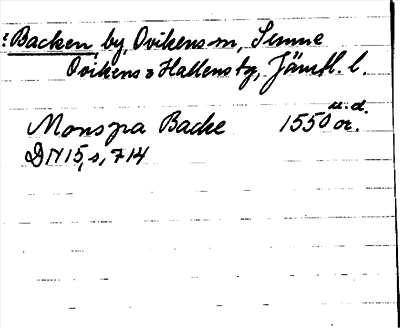 :Backen by, Ovikens sn,
Ovikens o Hallens tg, Jämtl. l.
u.d.
Mons pa Backe 1550 or.
DN 15, s, 714